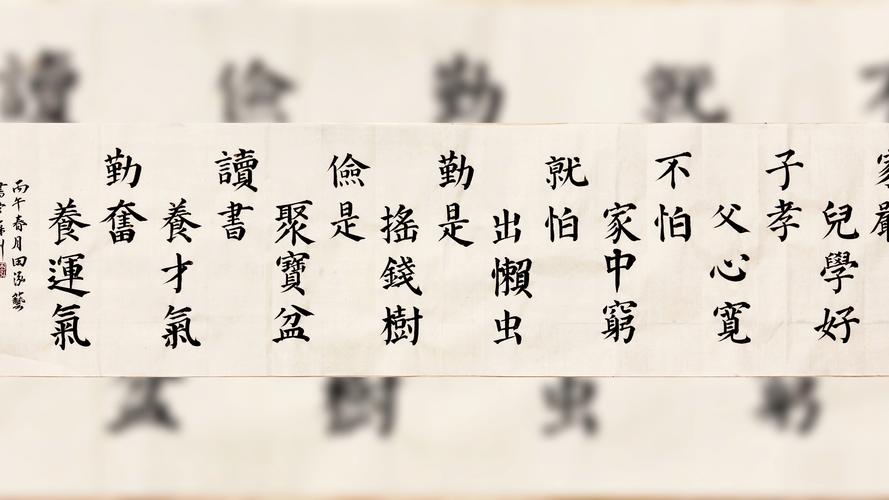 家嚴
兒學好
子孝
父心寬
不怕
家中窮
就怕
出懶虫
勤是
搖錢樹
儉是
聚寶盆
讀書
養才氣
勤奮
養運氣
丙午春月田